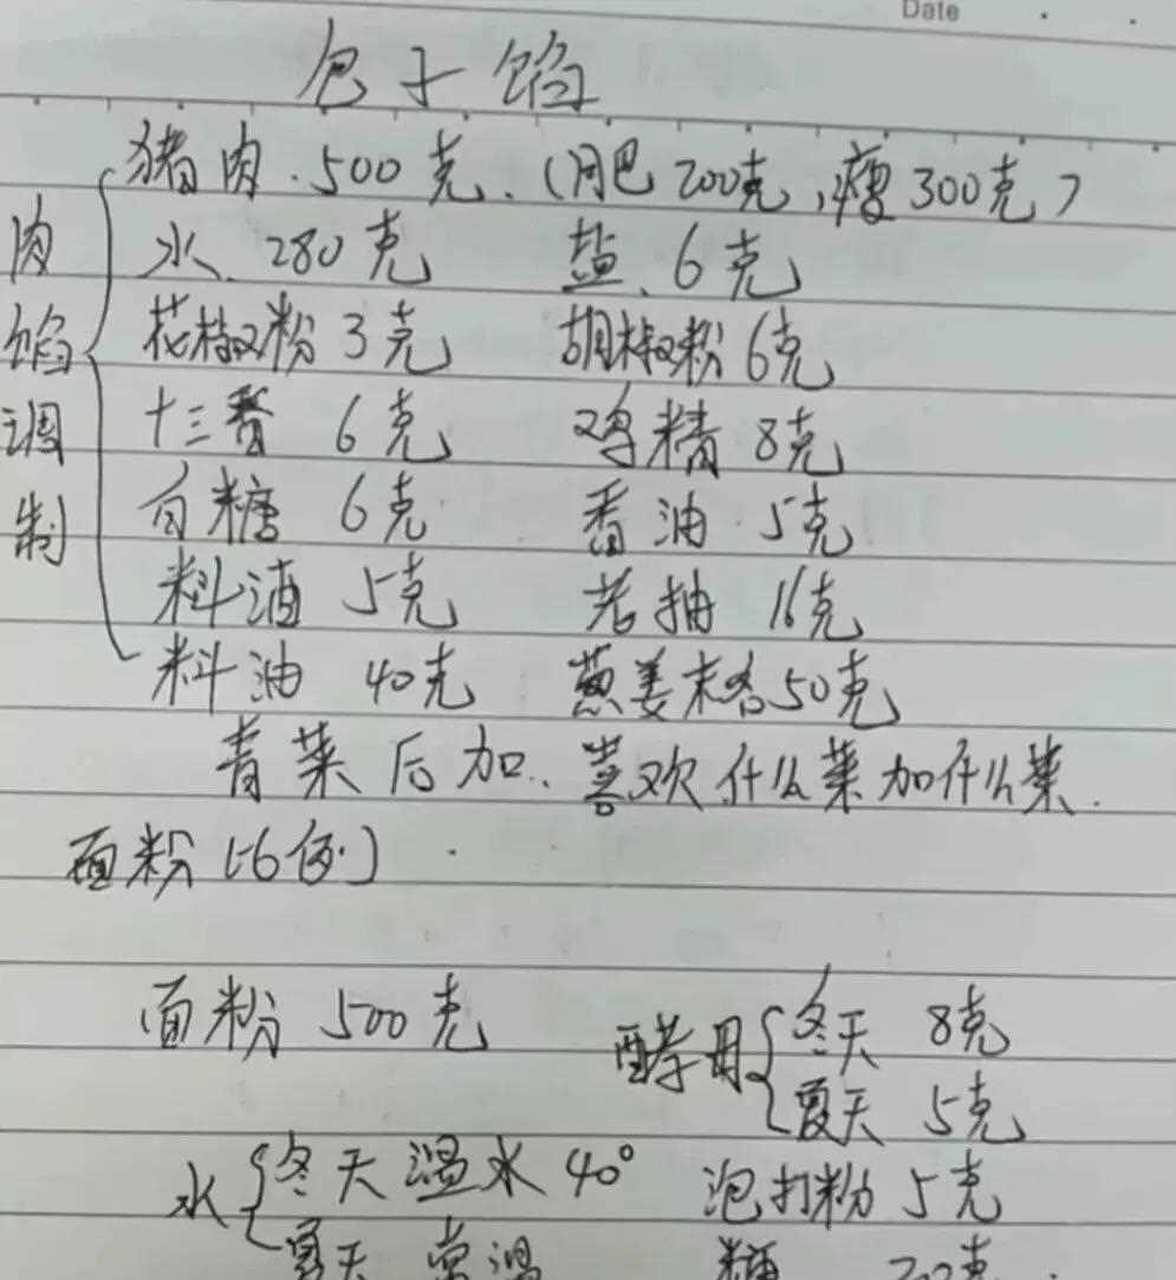 Date
包子馅
肉馅调制
猪肉.500克.(肥200克,瘦300克)
水.280克 盐.6克
花椒粉3克 胡椒粉6克
十三香 6克 鸡精 8克
白糖 6克 香油.5克
料酒 5克 老抽 16克
料油 40克 葱姜末各50克
青菜后加..喜欢什么菜加什么菜.
面粉(比例)
面粉 500克 酵母{冬天 8克
夏天 5克
水{冬天温水40° 泡打粉5克
夏天 常温 糖